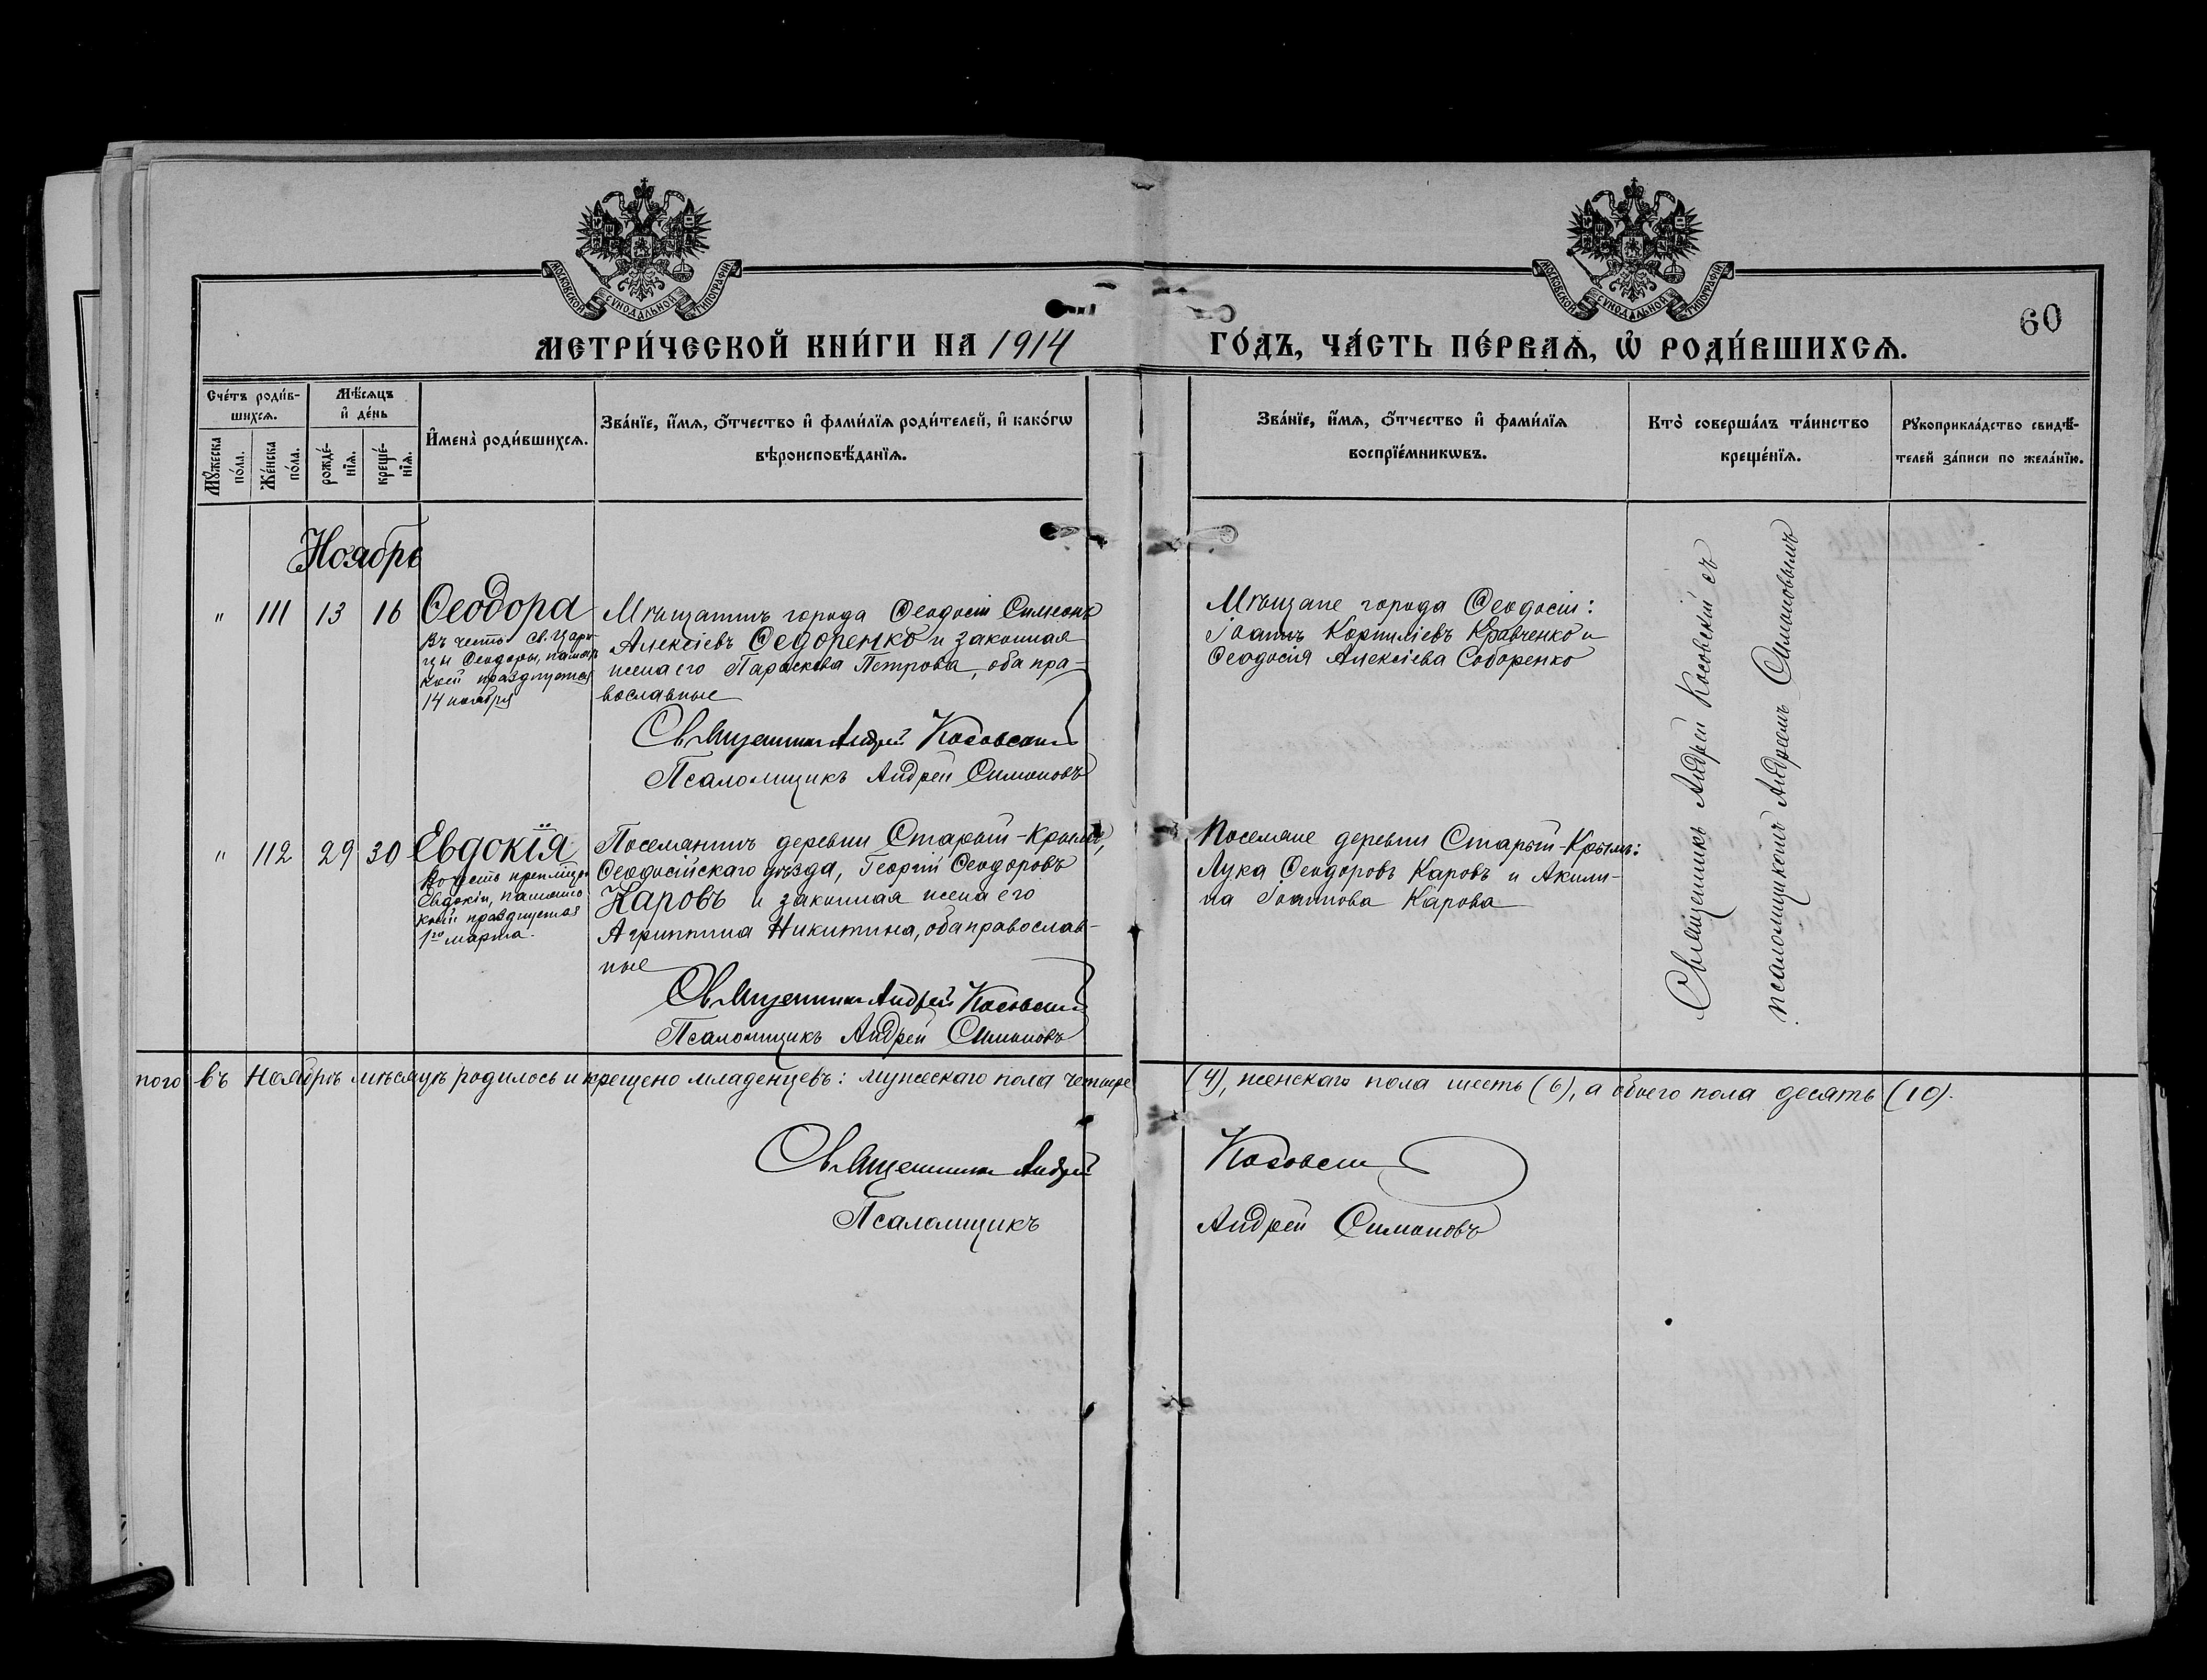 МОСКОВСКОЙ СѴНОДАЛЬНОЙ ТИПОГРАФІИ
МОСКОВСКОЙ СѴНОДАЛЬНОЙ ТИПОГРАФІИ
60
МЕТРИ́ЧЕСКОЙ КНИ́ГИ НА 1914
ГО́ДЪ, ЧА́СТЬ ПЕ́РВАѦ, Ѡ҆ РОДИ́ВШИХСѦ.
Сче́тъ роди́в-
шихсѧ.
Мѣ́сѧцъ
и҆ де́нь
Мꙋ́жеска
по́ла.
Же́нска
по́ла.
рожде́-
нїѧ.
креще́-
нїѧ.
И҆мена̀ роди́вшихсѧ.
Зва́нїе, и҆́мѧ, ѻ҆́тчество и҆ фами́лїѧ роди́телей, и҆ како́гѡ
вѣроисповѣ́данїѧ.
Зва́нїе, и҆́мѧ, ѻ҆́тчество и҆ фами́лїѧ
воспрїе́мникѡвъ.
Кто̀ соверша́лъ та́инство
креще́нїѧ.
Рꙋкоприкла́дство свидѣ́-
телей за́писи по жела́нїю.
Ноябрь
" 111 13 16 Ѳеодора
Въ честь св. Цари-
цы Ѳеодоры, память
коей празднуется
14 ноября
Мѣщанинъ города Ѳеодосіи Симеонъ
Алексіевъ Ѳедоренко и законная
жена его Параскева Петрова, оба пра-
вославные
Священникъ Андрей Косовскій
Псаломщикъ Андрей Симоновъ
Мѣщане города Ѳеодосіи:
Іоаннъ Корниліевъ Кравченко и
Ѳеодосія Алексіева Соборенко
Священникъ Андрей Косовскій съ
псаломщикомъ Андреемъ Симоновымъ
" 112 29 30 Евдокія
Во честь прпмцы
Евдокіи, память
коей празднуется
1го марта.
Поселянинъ деревни Старый-Крымъ,
Ѳеодосійскаго уѣзда, Георгій Ѳеодоровъ
Каровъ и законная жена его
Агриппина Никитина, оба православ-
ные
Священникъ Андрей Косовскій
Псаломщикъ Андрей Симоновъ
Поселяне деревни Старый-Крымъ:
Лука Ѳеодоровъ Каровъ и Акили-
на Іоаннова Карова
въ Ноябрѣ мѣсяцѣ родилось и крещено младенцевъ: мужескаго пола четыре (4), женскаго пола шесть (6), а обоего пола десять (10).
Священникъ Андрей Косовскій
Псаломщикъ Андрей Симоновъ